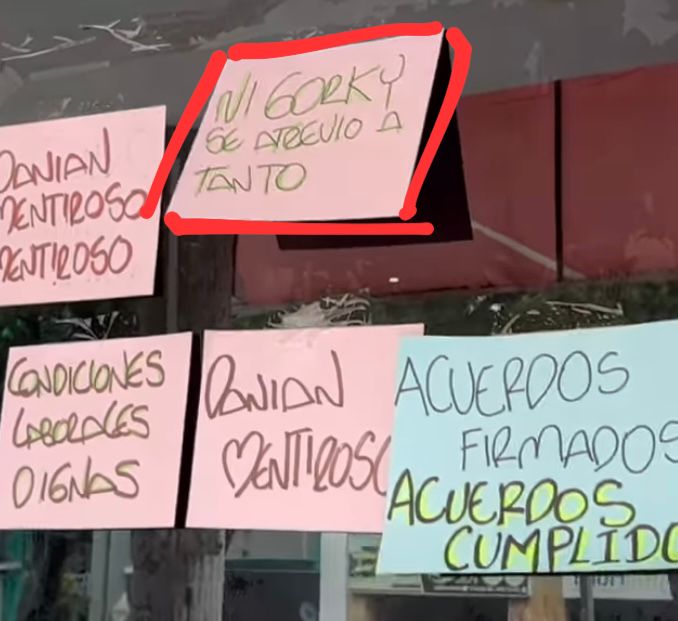 NI GORKY
SE ATREVIO A
TANTO
DANIAN
MENTIROSO
MENTIROSO
CONDICIONES
LABORALES
DIGNAS
DANIAN
MENTIROSO
ACUERDOS
FIRMADOS
ACUERDOS
CUMPLIDO